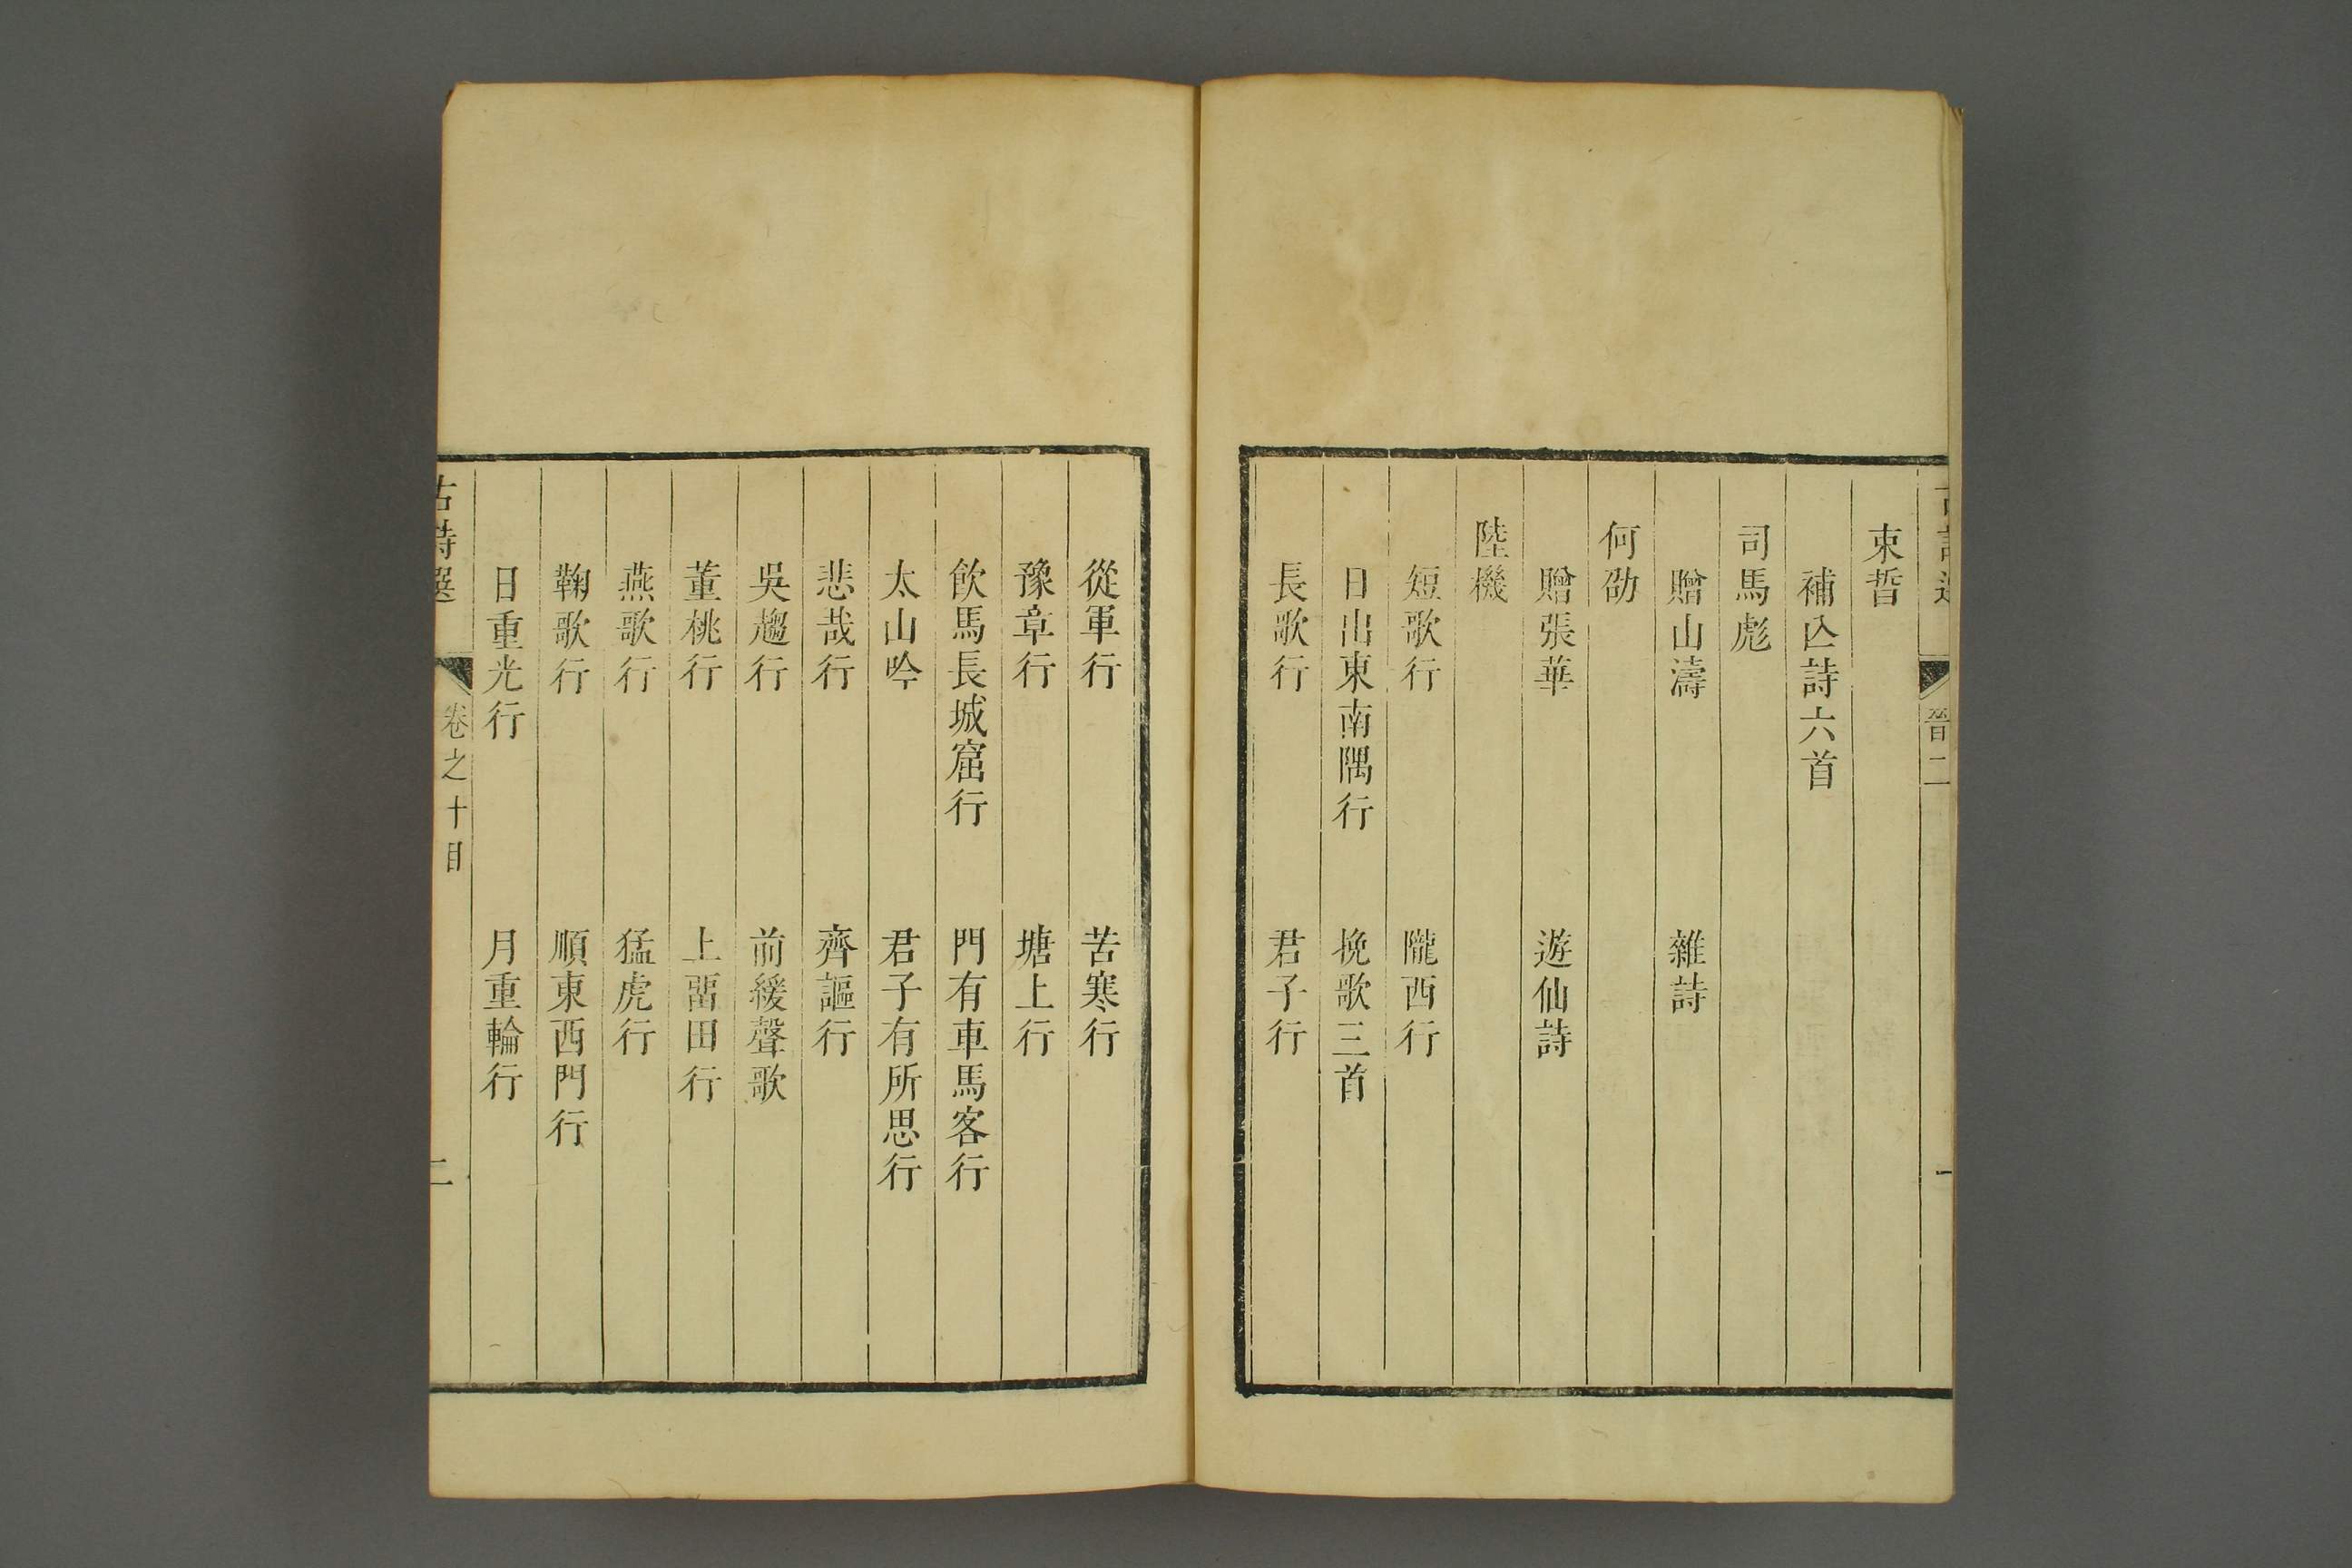 晉二
束晳
補亾詩六首
司馬彪
贈山濤　雜詩
何劭
贈張華　遊仙詩
陸機
短歌行　隴西行
日出東南隅行　挽歌三首
長歌行　君子行
從軍行　苦寒行
豫章行　塘上行
飲馬長城窟行　門有車馬客行
太山吟　君子有所思行
悲哉行　齊謳行
吳趨行　前緩聲歌
董桃行　上畱田行
燕歌行　猛虎行
鞠歌行　順東西門行
日重光行　月重輪行
古詩選　卷之十目　二